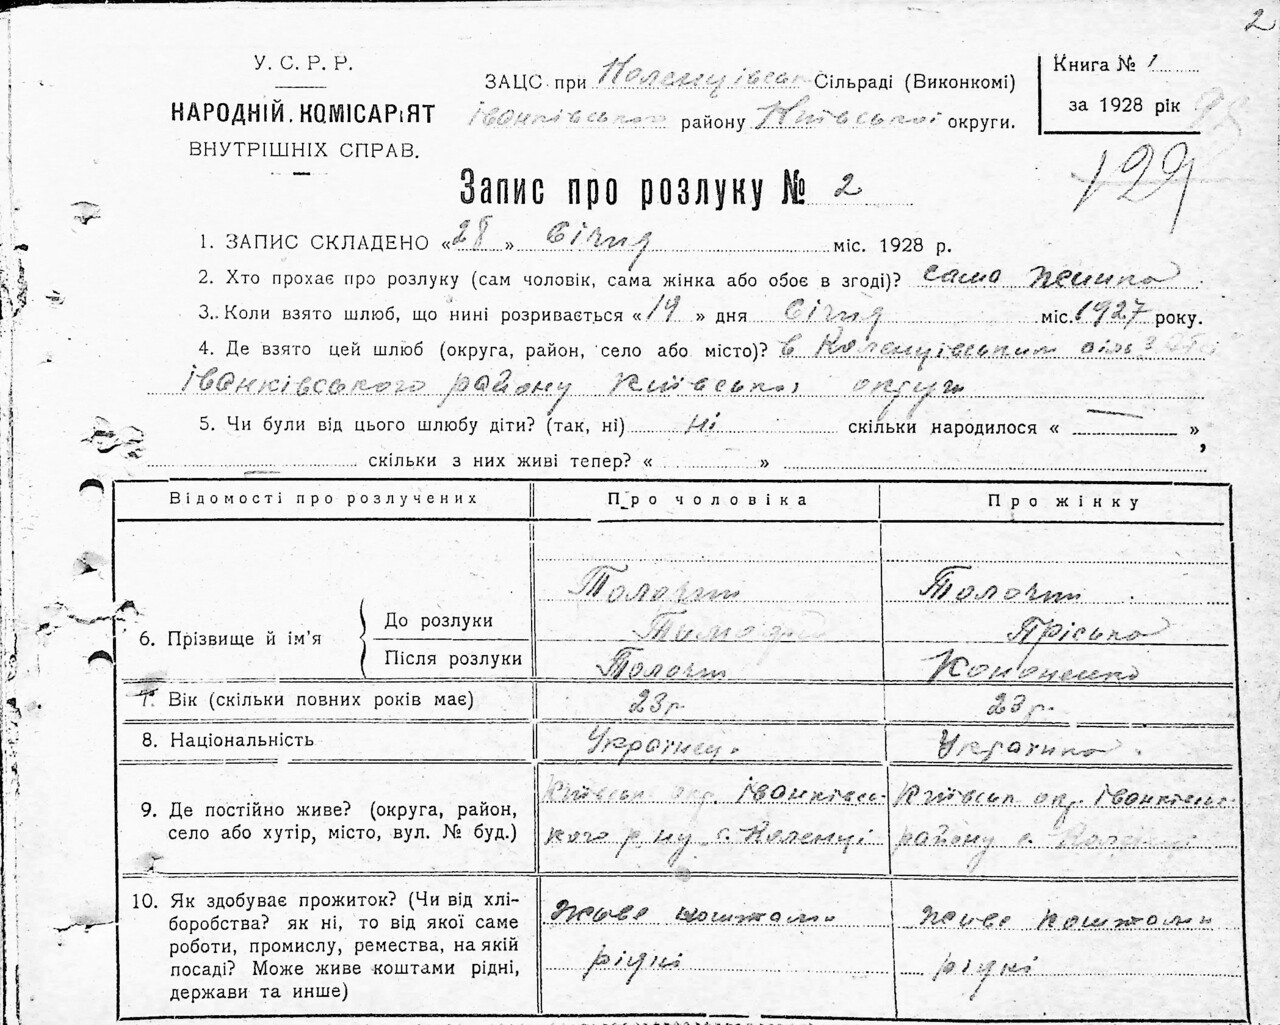 2
У. С. Р. Р.
НАРОДНІЙ КОМІСАРІЯТ
ВНУТРІШНІХ СПРАВ.
ЗАЦС при Коленцівськ Сільраді (Виконкомі)
Іванківського району Київської округи.
Книга № 1
за 1928 рік
129
Запис про розлуку № 2
1. ЗАПИС СКЛАДЕНО «28» Січня міс. 1928 р.
2. Хто прохає про розлуку (сам чоловік, сама жінка або обоє в згоді)? сама жинка
3. Коли взято шлюб, що нині розривається «19» дня Січня міс. 1927 року.
4. Де взято цей шлюб (округа, район, село або місто)? в Коленцівським сіль
Іванківського району Київської округи
5. Чи були від цього шлюбу діти? (так, ні) ні скільки народилося « — »,
скільки з них живі тепер? « »
Відомості про розлучених Про чоловіка Про жінку
6. Прізвище й ім'я
До розлуки Толочин Тимофій Толочин Пріська
Після розлуки Толочин Кононенко
7. Вік (скільки повних років має) 23 р. 23 р.
8. Національність Українец. Украинка.
9. Де постійно живе? (округа, район, село або хутір, місто, вул. № буд.)
Київськ окр. Іванківсь-
кого р ну с. Коленці
Київськ окр. Іванківськ
району с. Коленці
10. Як здобуває прожиток? (Чи від хлі-
боробства? як ні, то від якої саме
роботи, промислу, ремества, на якій
посаді? Може живе коштами рідні,
держави та инше)
Живе коштами
рідні
живе коштами
рідні